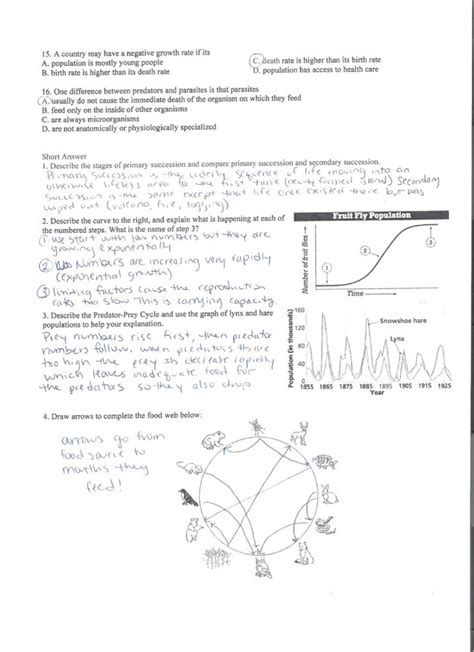 15. A country may have a negative growth rate if its
A. population is mostly young people
C. death rate is higher than its birth rate
B. birth rate is higher than its death rate
D. population has access to health care
16. One difference between predators and parasites is that parasites
A. usually do not cause the immediate death of the organism on which they feed
B. feed only on the inside of other organisms
C. are always microorganisms
D. are not anatomically or physiologically specialized
Short Answer
1. Describe the stages of primary succession and compare primary succession and secondary succession.
Primary succession is the orderly sequence of life moving into an
otherwise lifeless area for the first time (newly formed island) Secondary
succession is the same except that life once existed there but was
wiped out (volcano, fire, logging)
2. Describe the curve to the right, and explain what is happening at each of
the numbered steps. What is the name of step 3?
① We start with low numbers but they are
growing exponentially
② Numbers are increasing very rapidly
(exponential growth)
③ limiting factors cause the reproduction
rates too slow This is carrying capacity.
Fruit Fly Population
Number of fruit flies
1
2
3
Time
3. Describe the Predator-Prey Cycle and use the graph of lynx and hare
populations to help your explanation.
Prey numbers rise first, then predator
numbers follow, when predators are
too high the prey decrease rapidly
which leaves inadequate food for
the predators so they also drop.
Population (in thousands)
160
120
80
40
0
Snowshoe hare
Lynx
1855 1865 1875 1885 1895 1905 1915 1925
Year
4. Draw arrows to complete the food web below:
arrows go from
food source to
mouths they
feed!